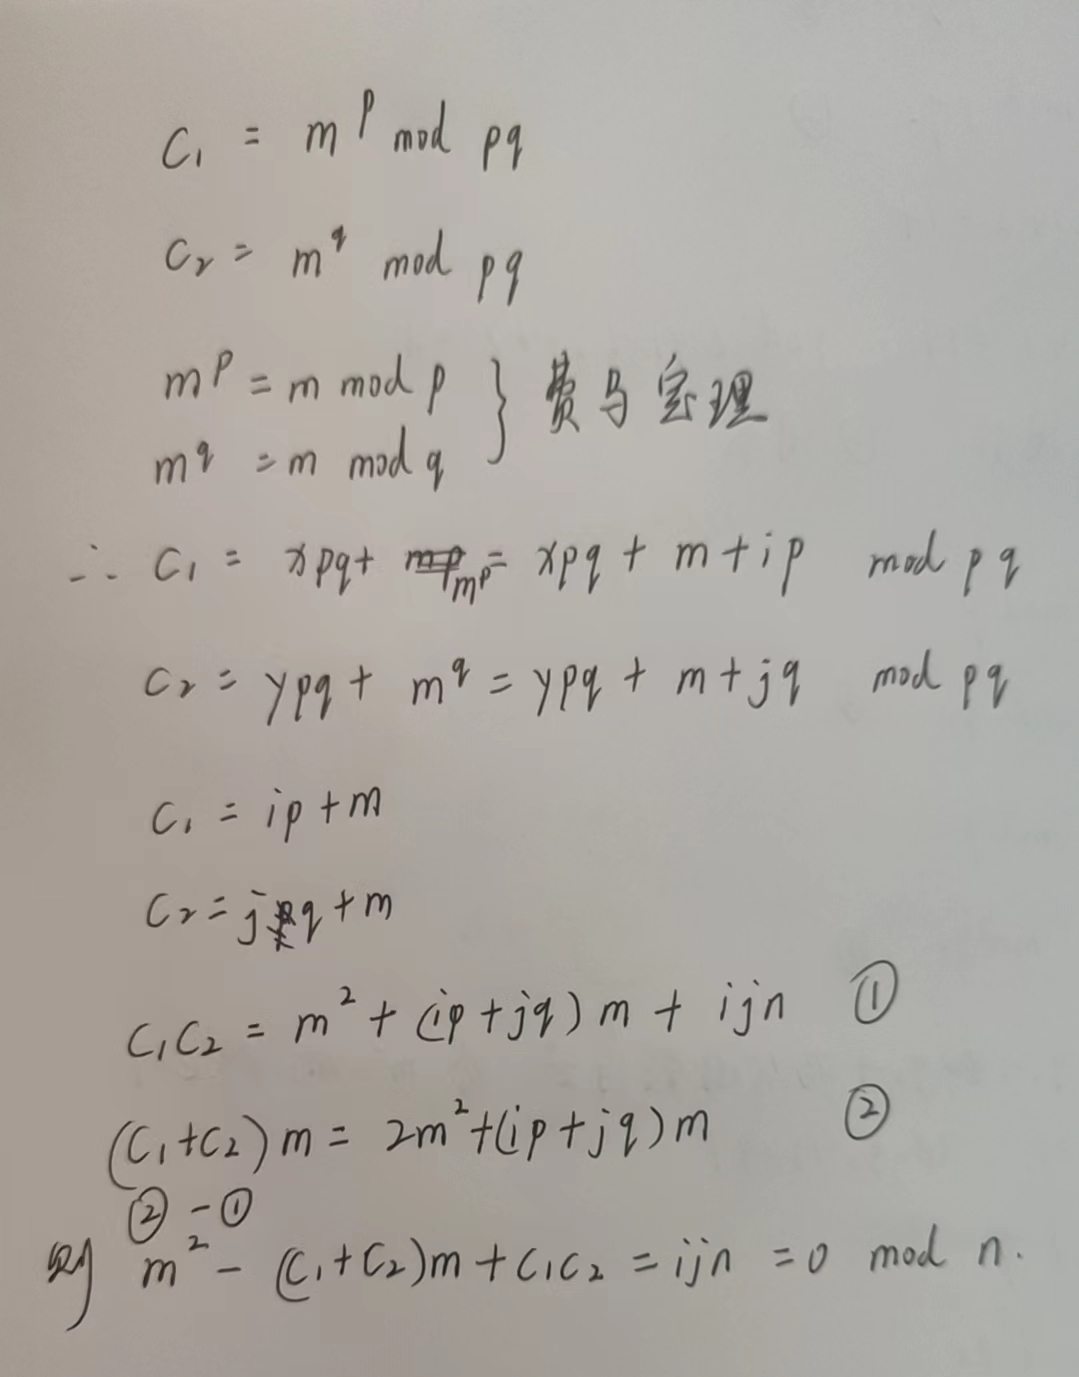 C₁ = m^p mod pq
C₂ = m^q mod pq
m^p = m mod p } 费马定理
m^q = m mod q
∴ C₁ = xpq + m^p = xpq + m + ip mod pq
C₂ = ypq + m^q = ypq + m + jq mod pq
C₁ = ip + m
C₂ = jq + m
C₁C₂ = m² + (ip + jq) m + ijn ①
(C₁+C₂) m = 2m² + (ip + jq) m ②
② - ①
则 m² - (C₁ + C₂)m + C₁C₂ = ijn = 0 mod n.